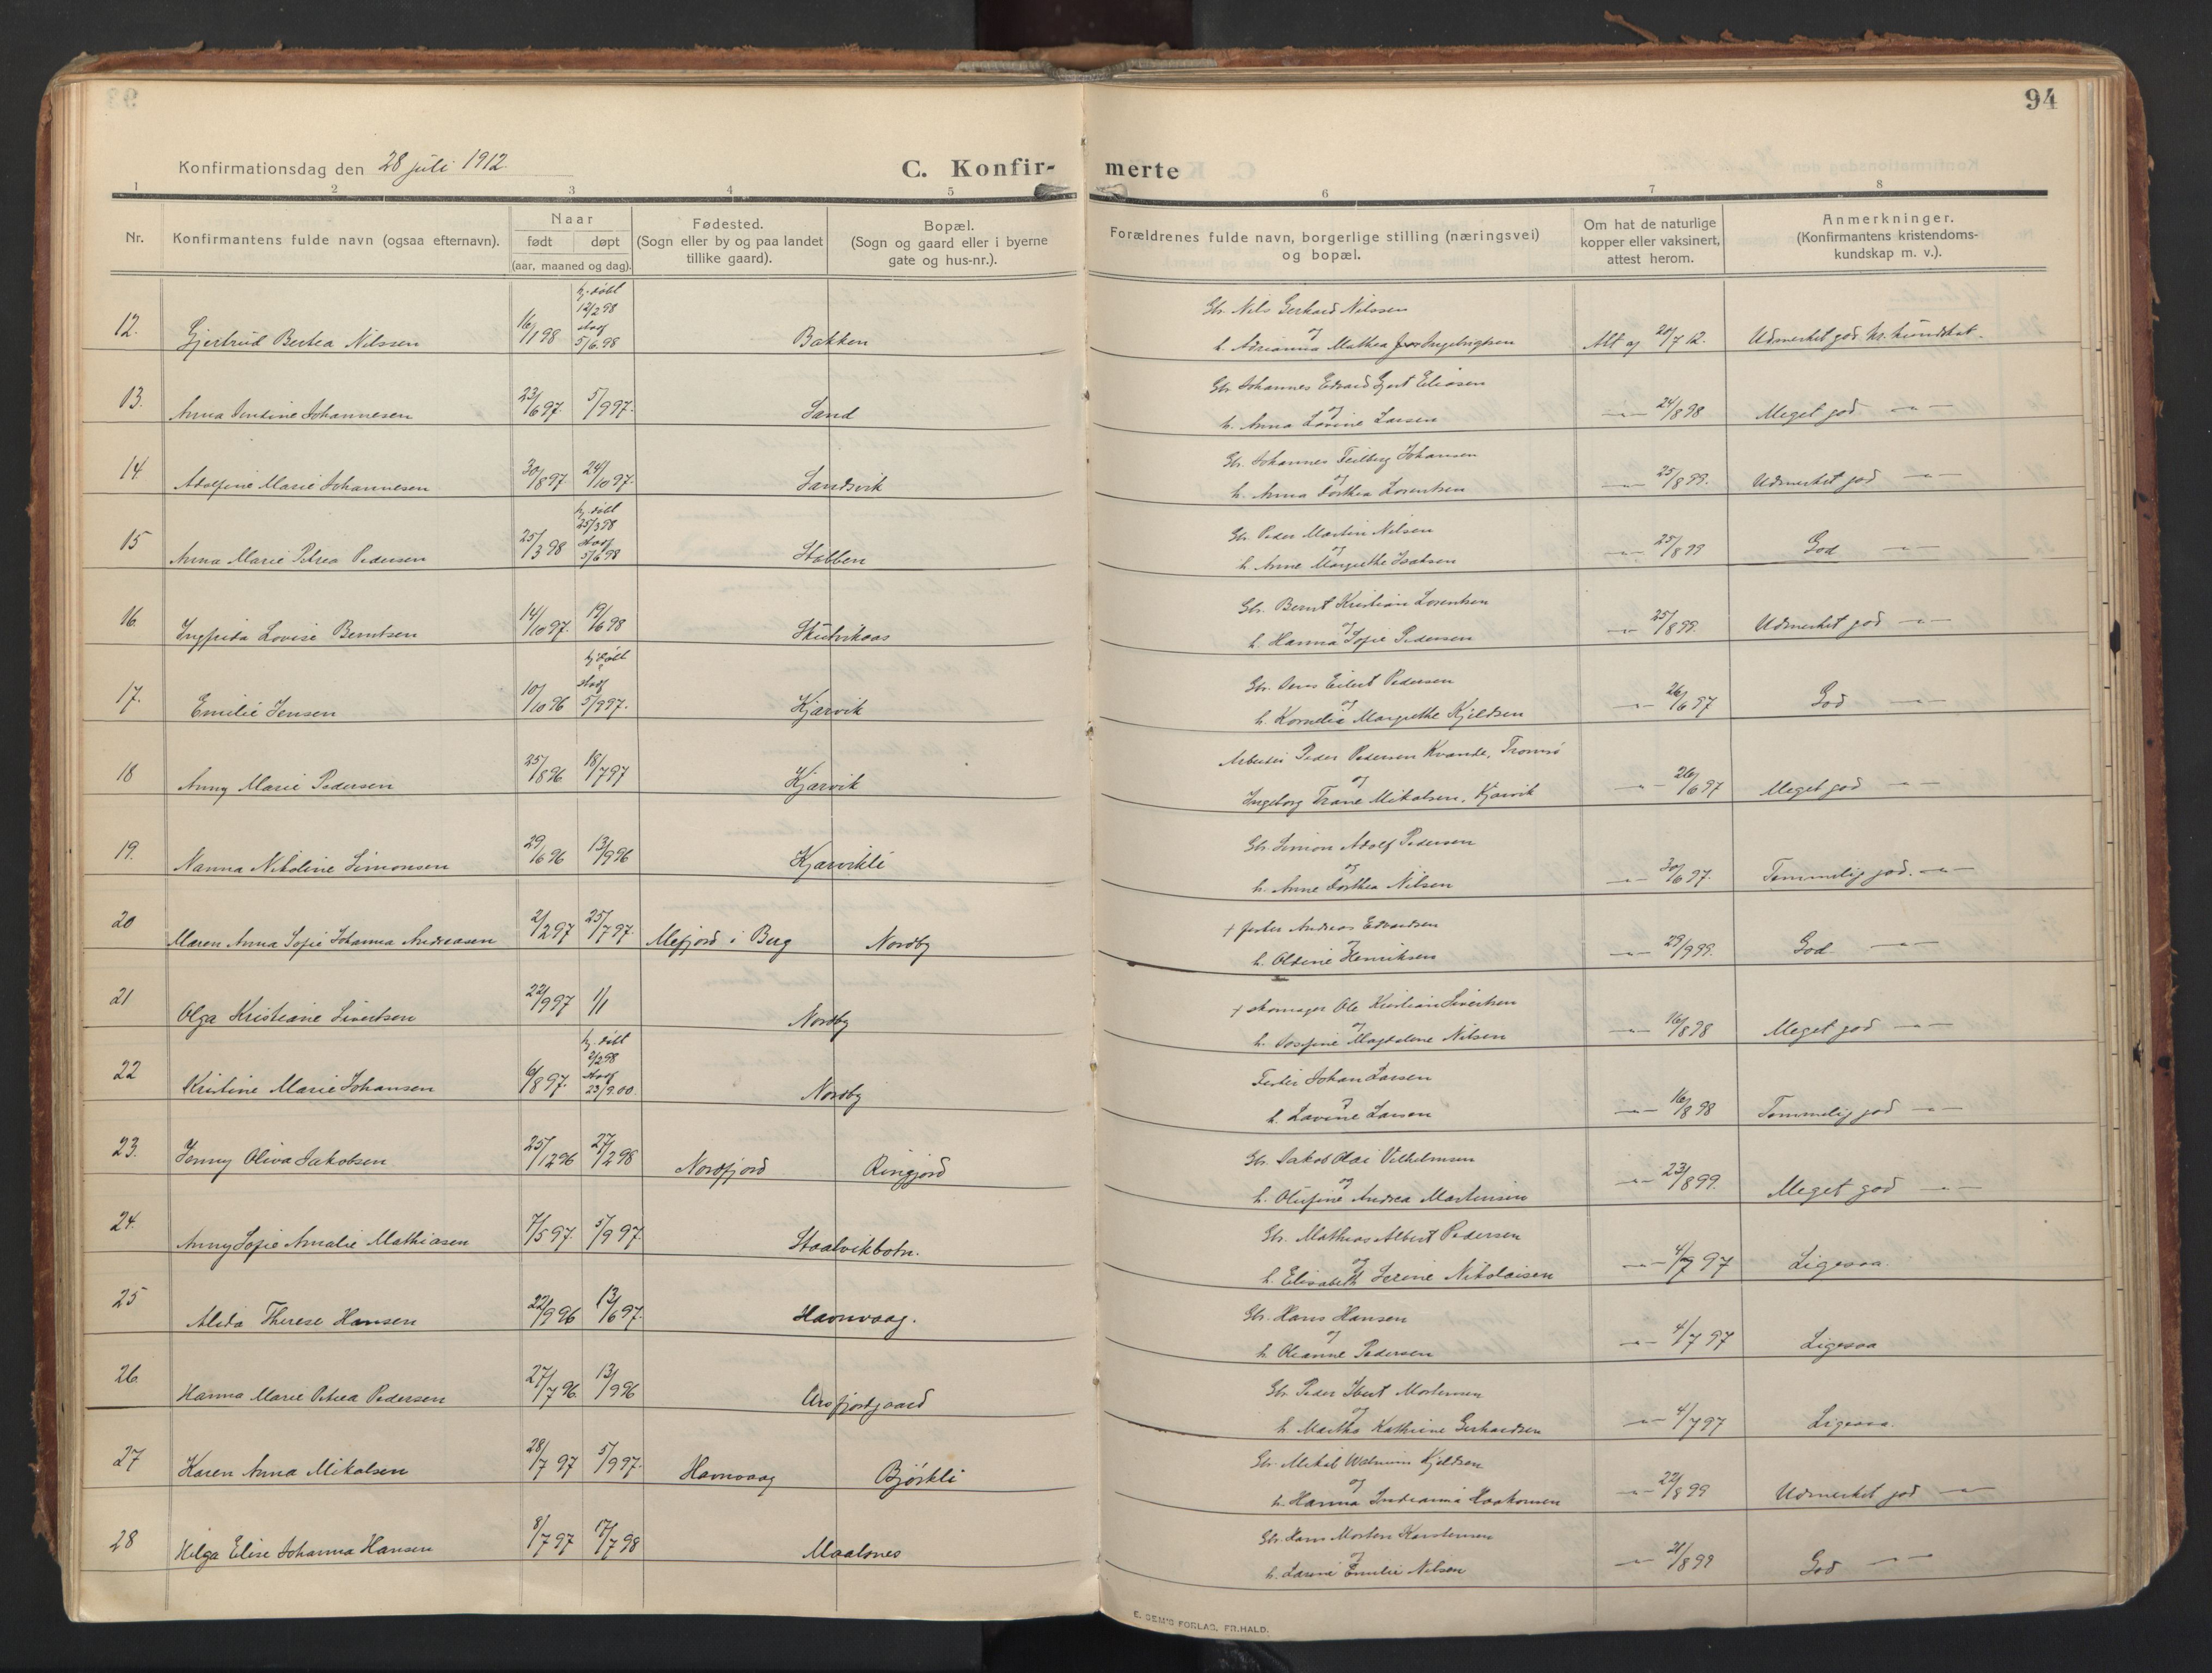 94
Konfirmationsdag den 28 juli 1912.
C. Konfirmerte
1 2 3 4 5 6 7 8
Nr.
Konfirmantens fulde navn (ogsaa efternavn).
Naar
født døpt
(aar, maaned og dag).
Fødested.
(Sogn eller by og paa landet
tillike gaard).
Bopæl.
(Sogn og gaard eller i byerne
gate og hus-nr.).
Forældrenes fulde navn, borgerlige stilling (næringsvei)
og bopæl.
Om hat de naturlige
kopper eller vaksinert,
attest herom.
Anmerkninger.
(Konfirmantens kristendoms-
kundskap m. v.).
hj. døbt
12/2 98
stadf
Gbr. Nils Gerhard Nilssen
og
12. Gjertrud Bertea Nilssen 16/1 98 5/6.98 Bakken h. Adrianna Mathea Ingebrigtsen Att af 20/7 12. Udmerket god kr. kundskab.
Gbr. Johannes Edvard Gjert Eliasen
og
13. Anna Johannesen 23/6 97. 5/9 97. Sand h. Anna Lovine Larsen —"— 24/8 98 Meget god —"—
Gbr. Johannes Feilberg Johansen
og
14. Adolfine Marie Johannesen 30/8 97. 24/10 97. Sandsvik h. Anna Dorthea Lorentsen —"— 25/8 99. Udmerket god —"—
hj. døbt
25/3 98
stadf
Gbr. Peder Martin Nilsen
og
15 Anna Marie Petrea Pedersen 25/3 98 5/6 98 Stobben h. Anne Margrethe Isaksen —"— 25/8 99 God —"—
Gbr. Bernt Kristian Lorentsen
og
16. Ingfrida Lovise Berntsen 14/10 97. 19/6 98 h. Hanna Sofie Pedersen —"— 25/8 99. Udmerket god —"—
hj døbt
stadf
Gbr. Jens Eilert Pedersen
og
17. Emilie Jensen 10/10 96 5/9 97. Kjærvik h. Kornelia Margrethe Kjeldsen —"— 26/6 97 God —"—
Arbeider Peder Pedersen Kvande, Tromsø
og
18 Anny Marie Pedersen 25/8 96 18/7 97 Kjærvik Ingeborg Trane Mikalsen, Kjærvik —"— 26/6 97 Meget god —"—
Gbr. Simon Adolf Pedersen
og
19. Nanna Nikoline Simonsen 29/6 96 13/9 96 Kjærvikli h. Anne Dorthea Nilsen —"— 30/6 97. Temmelig god. —"—
+ fisker Andreas Edvardsen
og
20 Maren Anna Sofie Johanna Andreasen 2/2 97 25/7 97. Mefjord i Berg Nordby h. Oldine Henriksen —"— 29/9 99. God —"—
+ skomager Ole Kristian Sivertsen
og
21 Olga Kristiane Sivertsen 22/9 97 1/1 Nordby h. Josefine Magdalene Nilsen —"— 16/8 98 Meget god —"—
hj. døbt
2/2 98
stadf
Fisker Johan Larsen
og
22 Kristine Marie Johansen 6/8 97. 23/9.00. Nordby h. Lovine Larsen —"— 16/8 98 Temmelig god —"—
Gbr. Jakob Olai Vilhelmsen
og
23. Jenny Oliva Jakobsen 25/12 96 27/2 98 Nordfjord Ringjord h. Olufine Andrea Martinsen —"— 23/8 99. Meget god —"—
Gbr. Mathias Albert Pedersen
og
24. Anny Sofie Amalie Mathiasen 7/5 97. 5/9 97 Staalvikbotn. h. Elisabeth Serine Nikolaisen —"— 4/7 97 Ligesaa.
Gbr. Hans Hansen
og
25 Alida Therese Hansen 22/9 96 13/6 97. Havnvaag. h. Oleanne Pedersen —"— 4/7 97 Ligesaa
Gbr. Peder Ibert Mortensen
og
26. Hanna Marie Petrea Pedersen 27/7 96. 13/9 96 Arsfjordgaard h. Martha Kathrine Gerhardsen —"— 4/7 97 Ligesaa.
Gbr. Mikal Kjeldsen
og
27 Karen Anna Mikalsen 28/7 97 5/9 97. Havnvaag Bjørkli h. Hanna Indianna Haakonsen —"— 22/8 99 Udmerket god —"—
Gbr. Hans Morten Karstensen
og
28 Helga Elise Johanna Hansen 8/7 97 17/7 98 Maalsnes h. Emilie Nilsen —"— 21/8 99 God —"—
E. SEM'S FORLAG, FR.HALD.